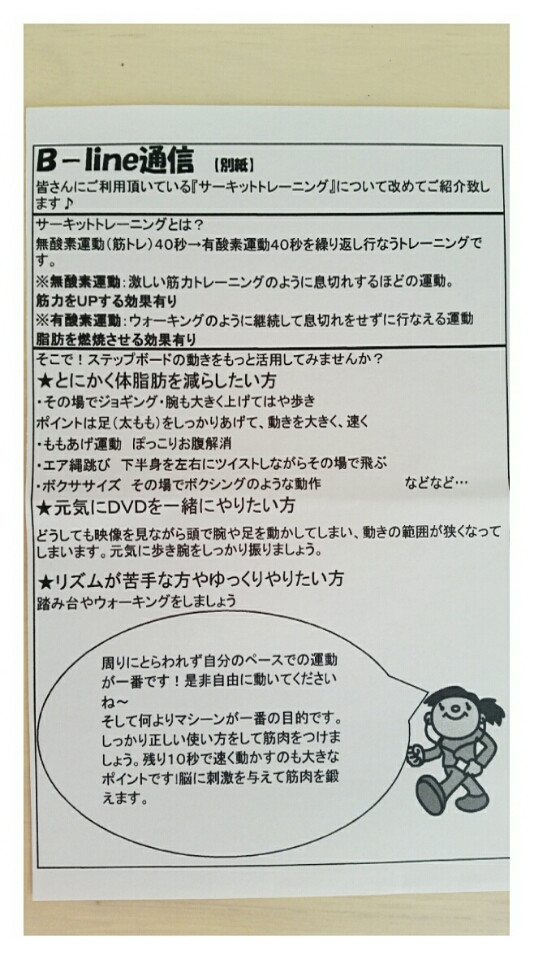 B－line通信 【別紙】
皆さんにご利用頂いている『サーキットトレーニング』について改めてご紹介致し
ます♪
サーキットトレーニングとは？
無酸素運動（筋トレ）４０秒→有酸素運動４０秒を繰り返し行なうトレーニングで
す。
※無酸素運動：激しい筋力トレーニングのように息切れするほどの運動。
筋力をUPする効果有り
※有酸素運動：ウォーキングのように継続して息切れをせずに行なえる運動
脂肪を燃焼させる効果有り
そこで！ステップボードの動きをもっと活用してみませんか？
★とにかく体脂肪を減らしたい方
・その場でジョギング・腕も大きく上げてはや歩き
ポイントは足（太もも）をしっかりあげて、動きを大きく、速く
・ももあげ運動　ぽっこりお腹解消
・エア縄跳び　下半身を左右にツイストしながらその場で飛ぶ
・ボクササイズ　その場でボクシングのような動作　などなど…
★元気にDVDを一緒にやりたい方
どうしても映像を見ながら頭で腕や足を動かしてしまい、動きの範囲が狭くなって
しまいます。元気に歩き腕をしっかり振りましょう。
★リズムが苦手な方やゆっくりやりたい方
踏み台やウォーキングをしましょう
周りにとらわれず自分のペースでの運動
が一番です！是非自由に動いてください
ね～
そして何よりマシーンが一番の目的です。
しっかり正しい使い方をして筋肉をつけま
しょう。残り１０秒で速く動かすのも大きな
ポイントです!脳に刺激を与えて筋肉を鍛
えます。